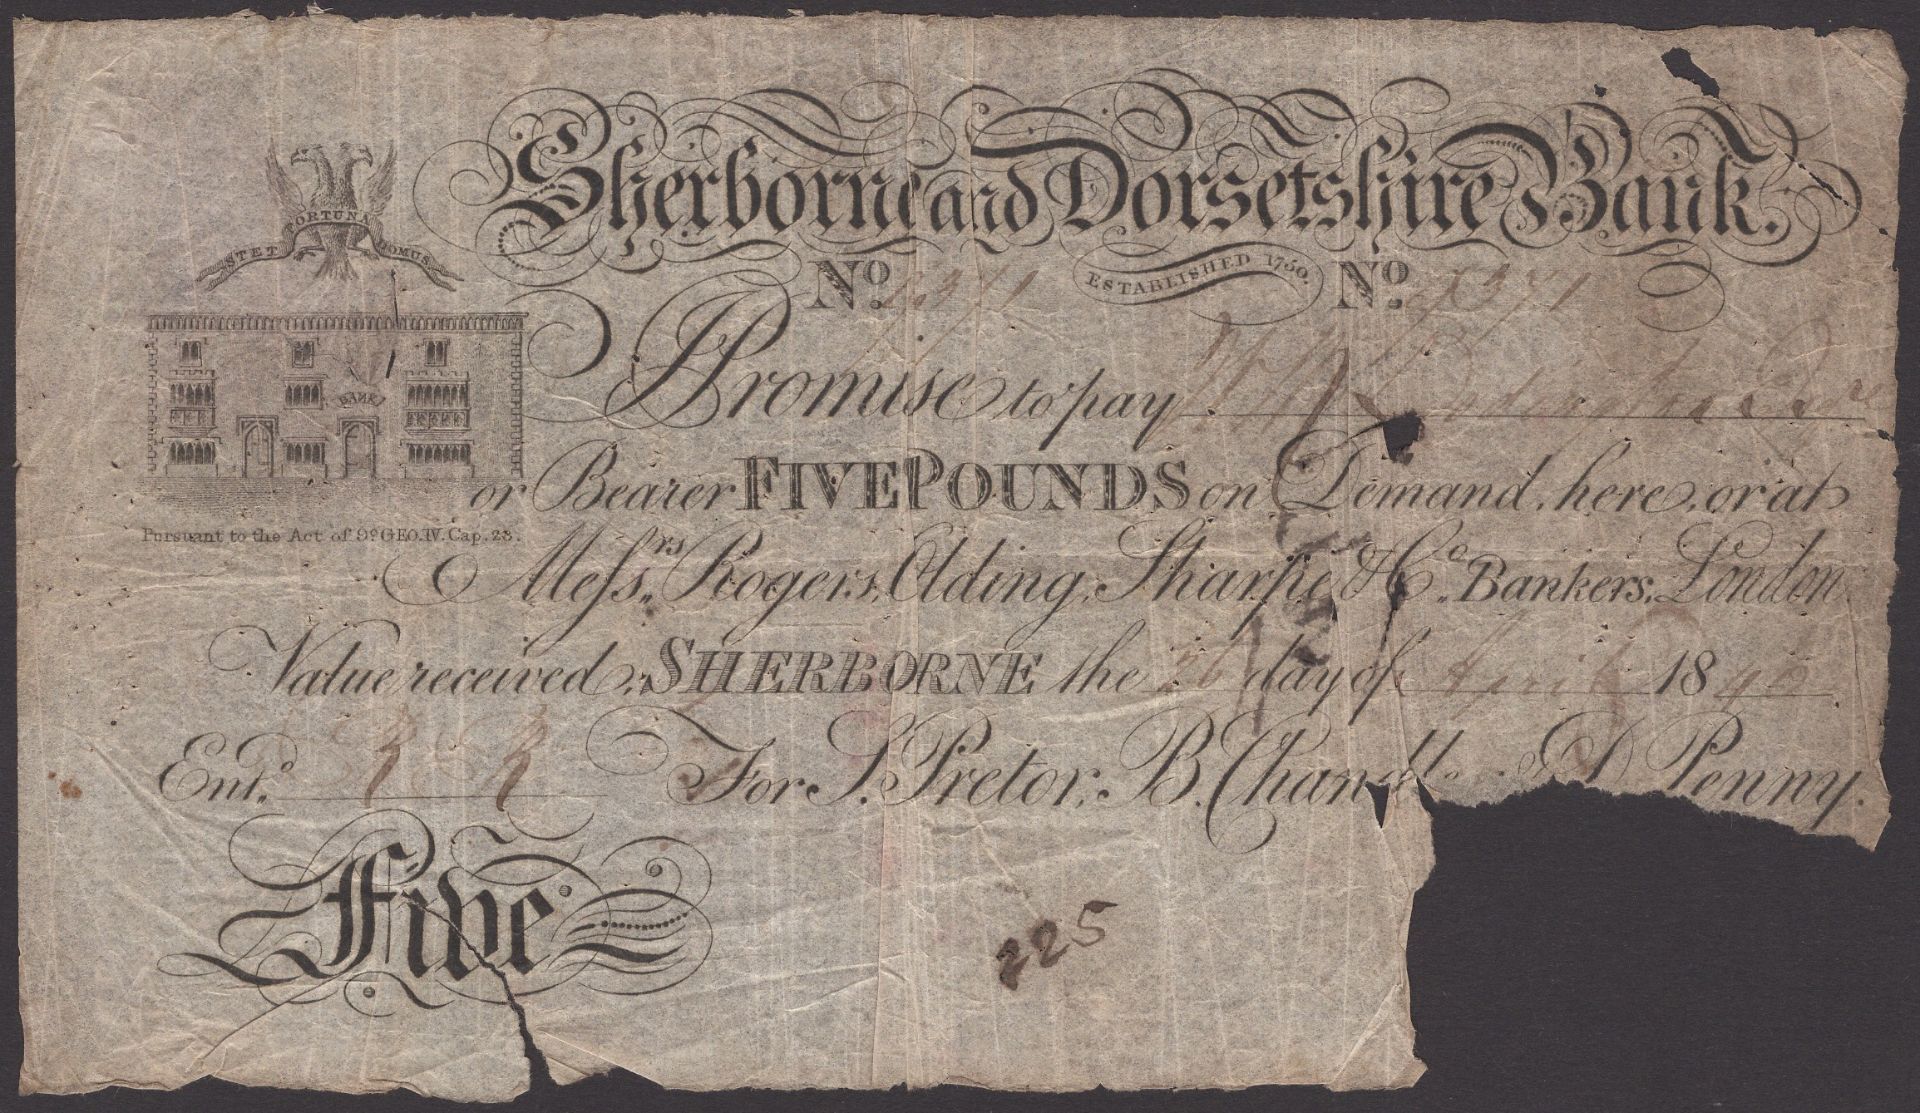 Sherborne and Dorsetshire Bank.
STET FORTUNA DOMUS
No. ESTABLISHED 1750. No.
Promise to pay
BANK
or Bearer FIVE POUNDS on Demand, here, or at
Pursuant to the Act of 9o GEO. IV. Cap. 23.
Messrs. Rogers, Olding, Sharpe & Co. Bankers, London.
Value received, SHERBORNE the 26 day of April 1840
Entd. R R For S. Pretor, B. Chandl D Penny.
Five
225